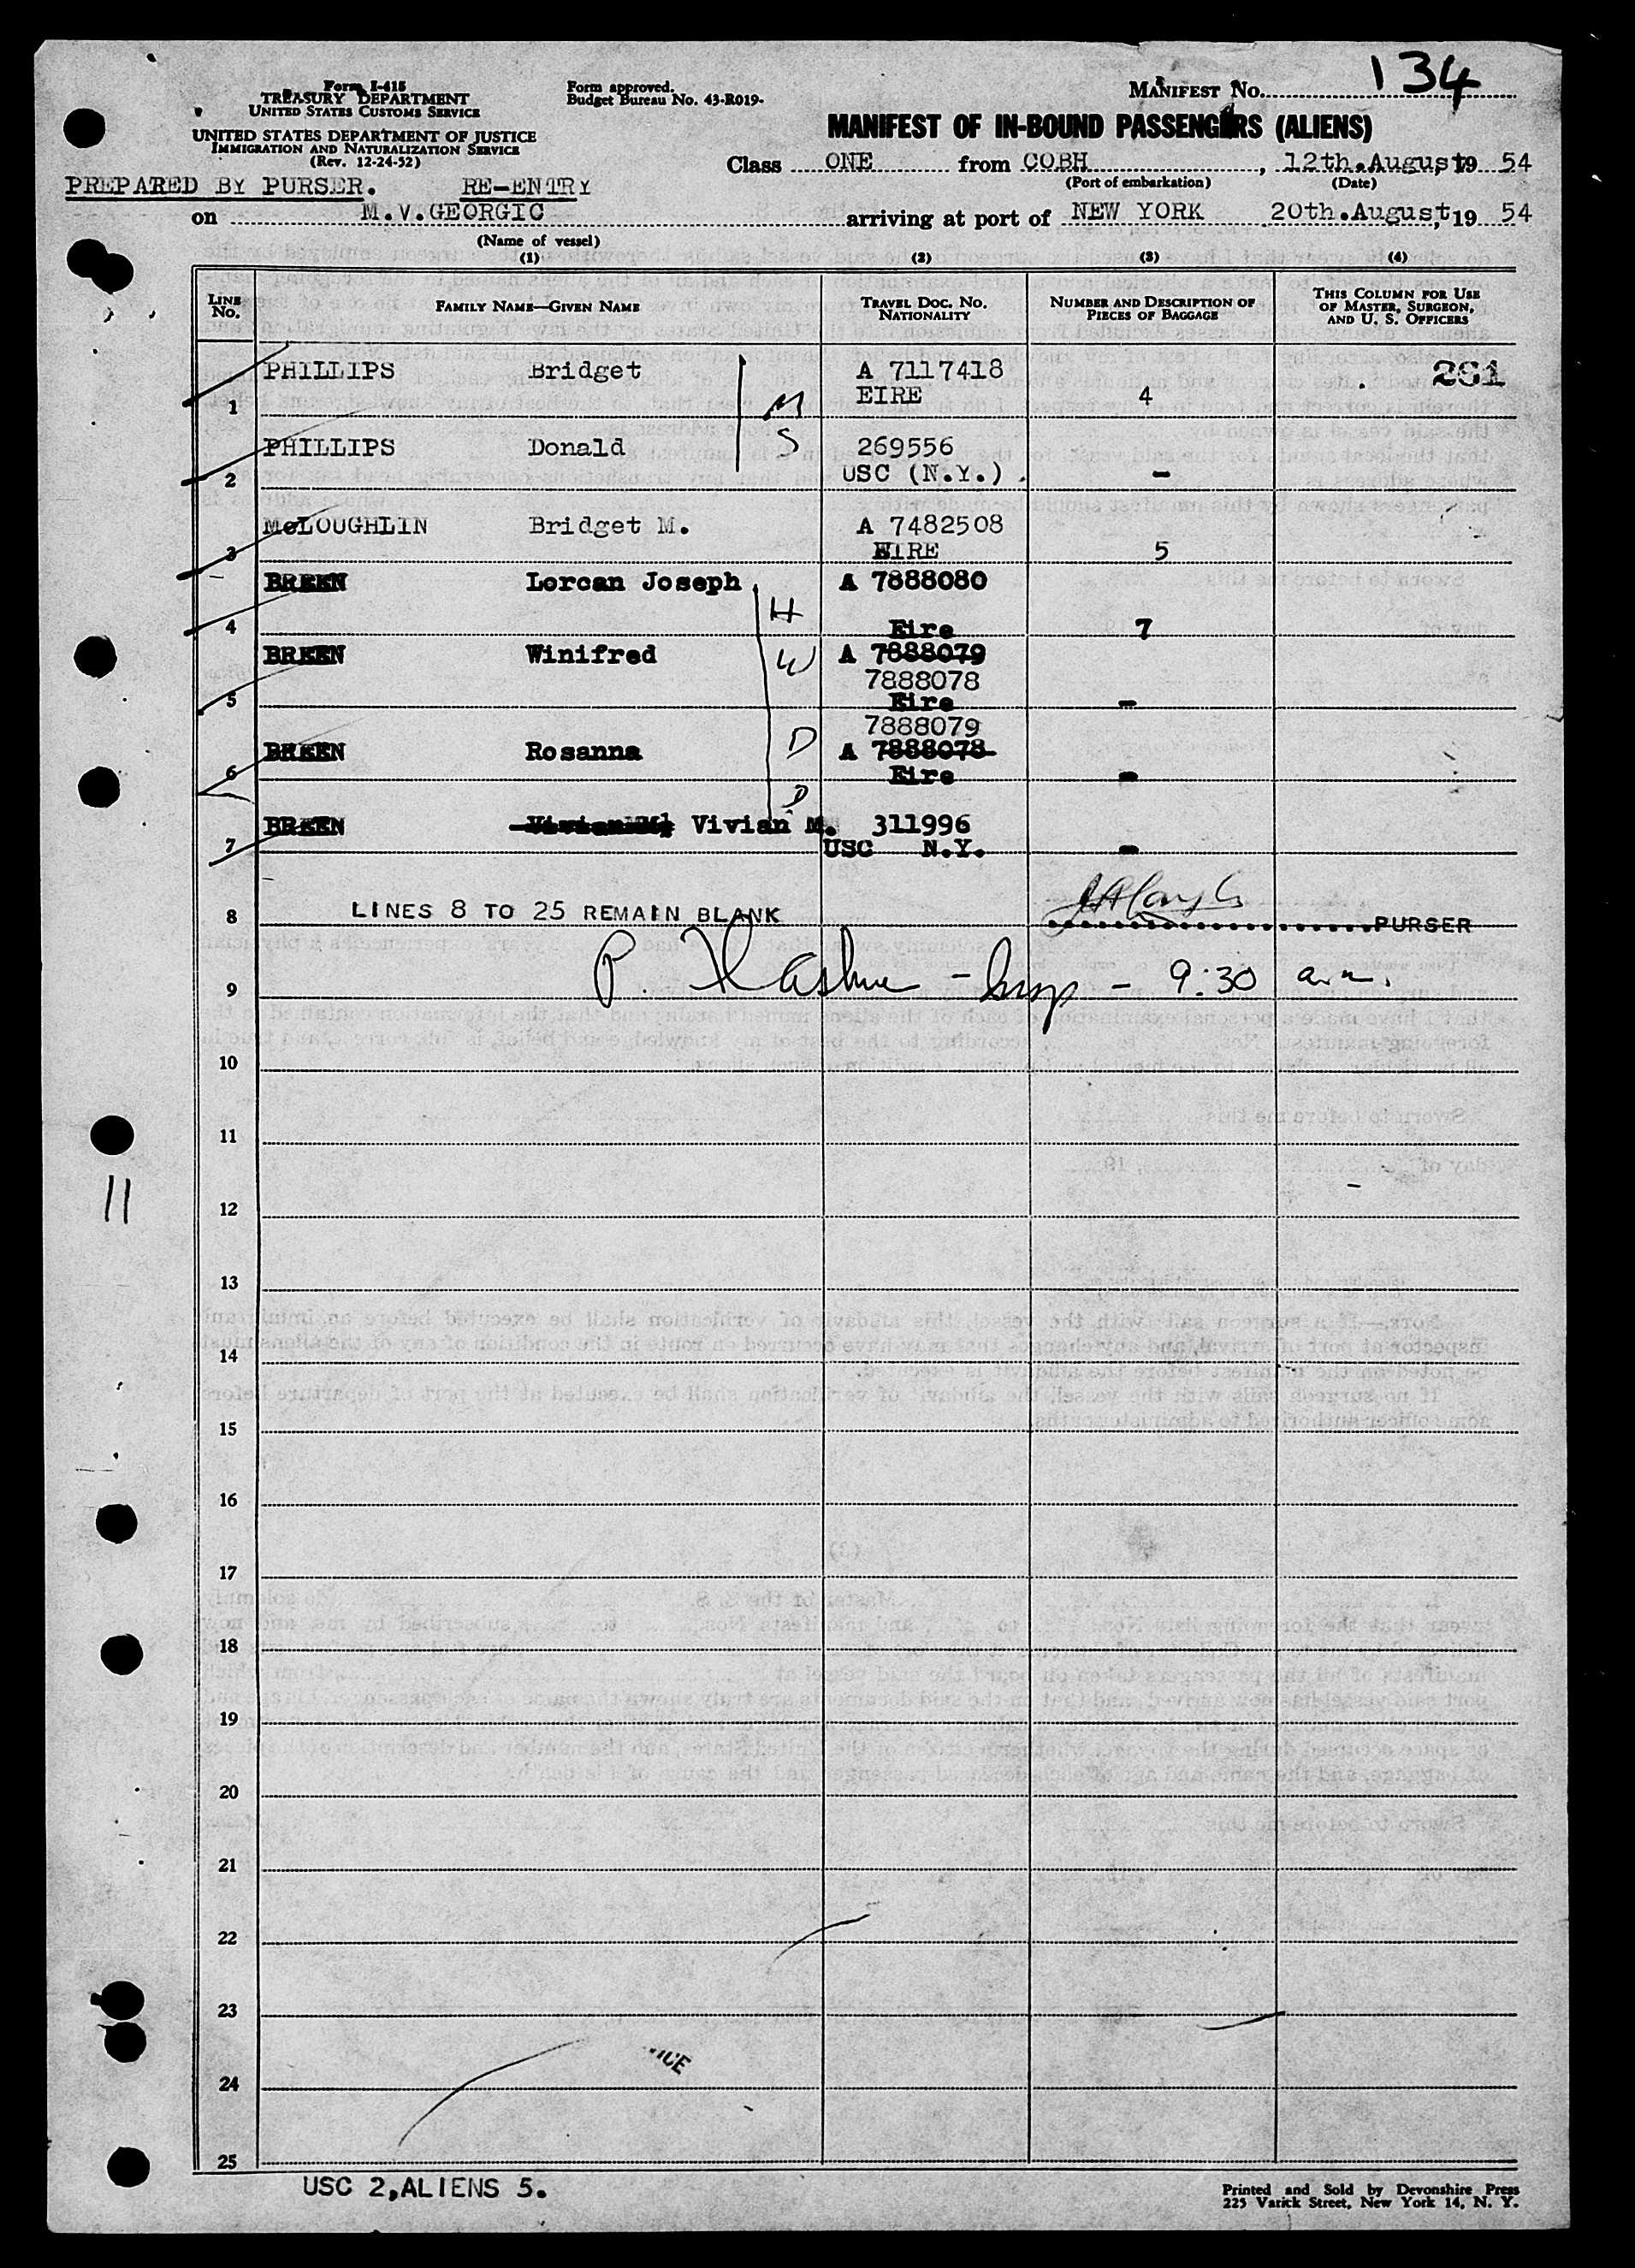 Form I-415
TREASURY DEPARTMENT
UNITED STATES CUSTOMS SERVICE
UNITED STATES DEPARTMENT OF JUSTICE
IMMIGRATION AND NATURALIZATION SERVICE
(Rev. 12-24-52)
Form approved.
Budget Bureau No. 43-R019-
MANIFEST No. 134
MANIFEST OF IN-BOUND PASSENGERS (ALIENS)
Class ONE from COBH, 12th.August, 19 54
(Port of embarkation) (Date)
PREPARED BY PURSER. RE-ENTRY
on M.V.GEORGIC arriving at port of NEW YORK 20th.August, 19 54
(Name of vessel)
(1) (2) (3) (4)
LINE No. FAMILY NAME—GIVEN NAME TRAVEL DOC. No. NATIONALITY NUMBER AND DESCRIPTION OF PIECES OF BAGGAGE THIS COLUMN FOR USE OF MASTER, SURGEON, AND U. S. OFFICERS
PHILLIPS Bridget A 7117418 261
1 M EIRE 4
PHILLIPS Donald S 269556
2 USC (N.Y.). -
McLOUGHLIN Bridget M. A 7482508
3 EIRE 5
BREEN Lorcan Joseph H A 7888080
4 Eire 7
BREEN Winifred W A 7888079
7888078
5 Eire -
7888079
BREEN Rosanna D A 7888078
6 Eire -
D
BREEN Vivian M. Vivian M. 311996
7 USC N.Y. -
8 LINES 8 TO 25 REMAIN BLANK PURSER
9 P. - Insp - 9:30 a.m.
10
11
11
12
13
14
15
16
17
18
19
20
21
22
23
24
25
USC 2,ALIENS 5.
Printed and Sold by Devonshire Press
225 Varick Street, New York 14, N. Y.